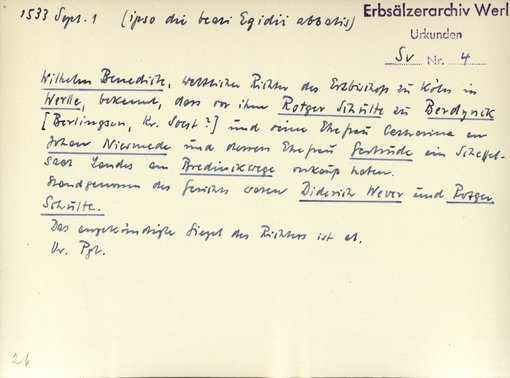 1533 Sept. 1 (ipso die beati Egidii abbatis)
Erbsälzerarchiv Werl
Urkunden
Sv Nr. 4
Wilhelm Benedicte, weltlicher Richter des Erzbischofs zu Köln in
Werlle, bekennt, dass vor ihm Rotger Schulte zu Berdynck
[Berlingsen, Kr. Soest?] und seine Ehefrau Catharina an
Johan Niesmede und dessen Ehefrau Gertrude ein Scheffel-
saat Landes am Bredinckwege verkauft haben.
Standgenossen des Gerichts waren Diderich Wever und Rotger
Schulte.
Das angekündigte Siegel des Richters ist ab.
Or. Pgt.
26